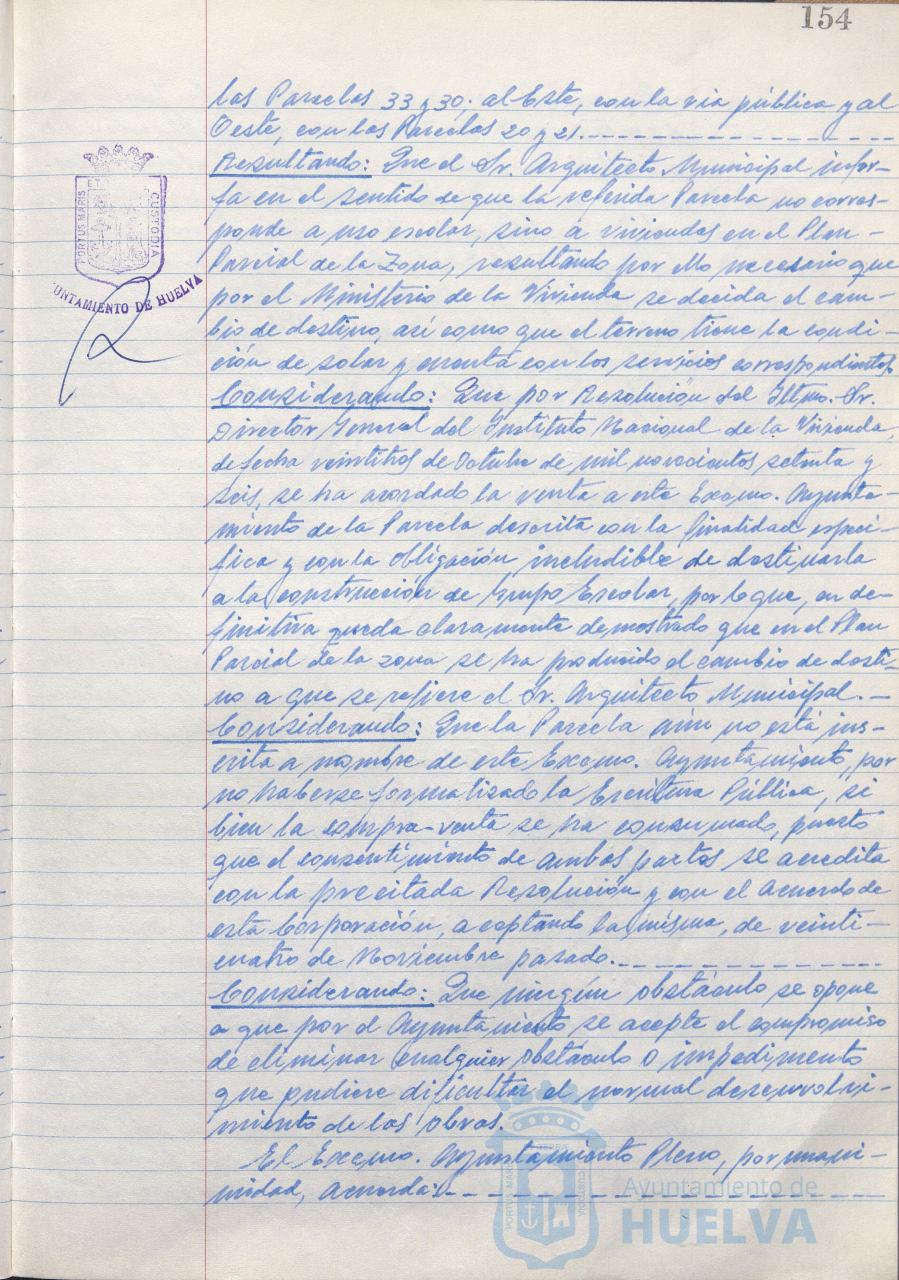 154
las Parcelas 33 y 30; al Este, con la via pública y al
Oeste, con las Parcelas 20 y 21.
Resultando: Que el Sr. Arquitecto Municipal infor-
fa en el sentido de que la referida Parcela no corres-
ponde a uso escolar, sino a viviendas en el Plan
Parcial de la Zona, resultando por ello necesario que
por el Ministerio de la Vivienda se decida el cam-
bio de destino, así como que el terreno tiene la condi-
ción de solar y cuenta con los servicios correspondientes.
Considerando: Que por Resolución del Iltmo. Sr.
Director General del Instituto Nacional de la Vivienda,
de fecha veintitros de Octubre de mil novecientos setenta y
seis, se ha acordado la venta a este Excmo. Ayunta-
miento de la Parcela descrita con la finalidad especí-
fica y con la obligación ineludible de destinarla
a la construcción de Grupo Escolar, por lo que, en de-
finitiva queda claramente demostrado que en el Plan
Parcial de la zona se ha producido el cambio de desti-
no a que se refiere el Sr. Arquitecto Municipal.
Considerando: Que la Parcela aún no está ins-
crita a nombre de este Excmo. Ayuntamiento, por
no haberse formalizado la Escritura Pública, si
bien la compra-venta se ha consumado, puesto
que el consentimiento de ambas partes se acredita
con la precitada Resolución y con el acuerdo de
esta Corporación, aceptando la misma, de veinti-
cuatro de Noviembre pasado.
Considerando: Que ningún obstáculo se opone
a que por el Ayuntamiento se acepte el compromiso
de eliminar cualquier obstáculo o impedimento
que pudiere dificultar el normal desenvolvi-
miento de las obras.
El Excmo. Ayuntamiento Pleno, por unani-
midad, acuerda:
PORTUS MARIS ET CUSTODIA
UNTAMIENTO DE HUELVA
PORTUS MARIS ET TERRIS CUSTODIA
Ayuntamiento de
HUELVA